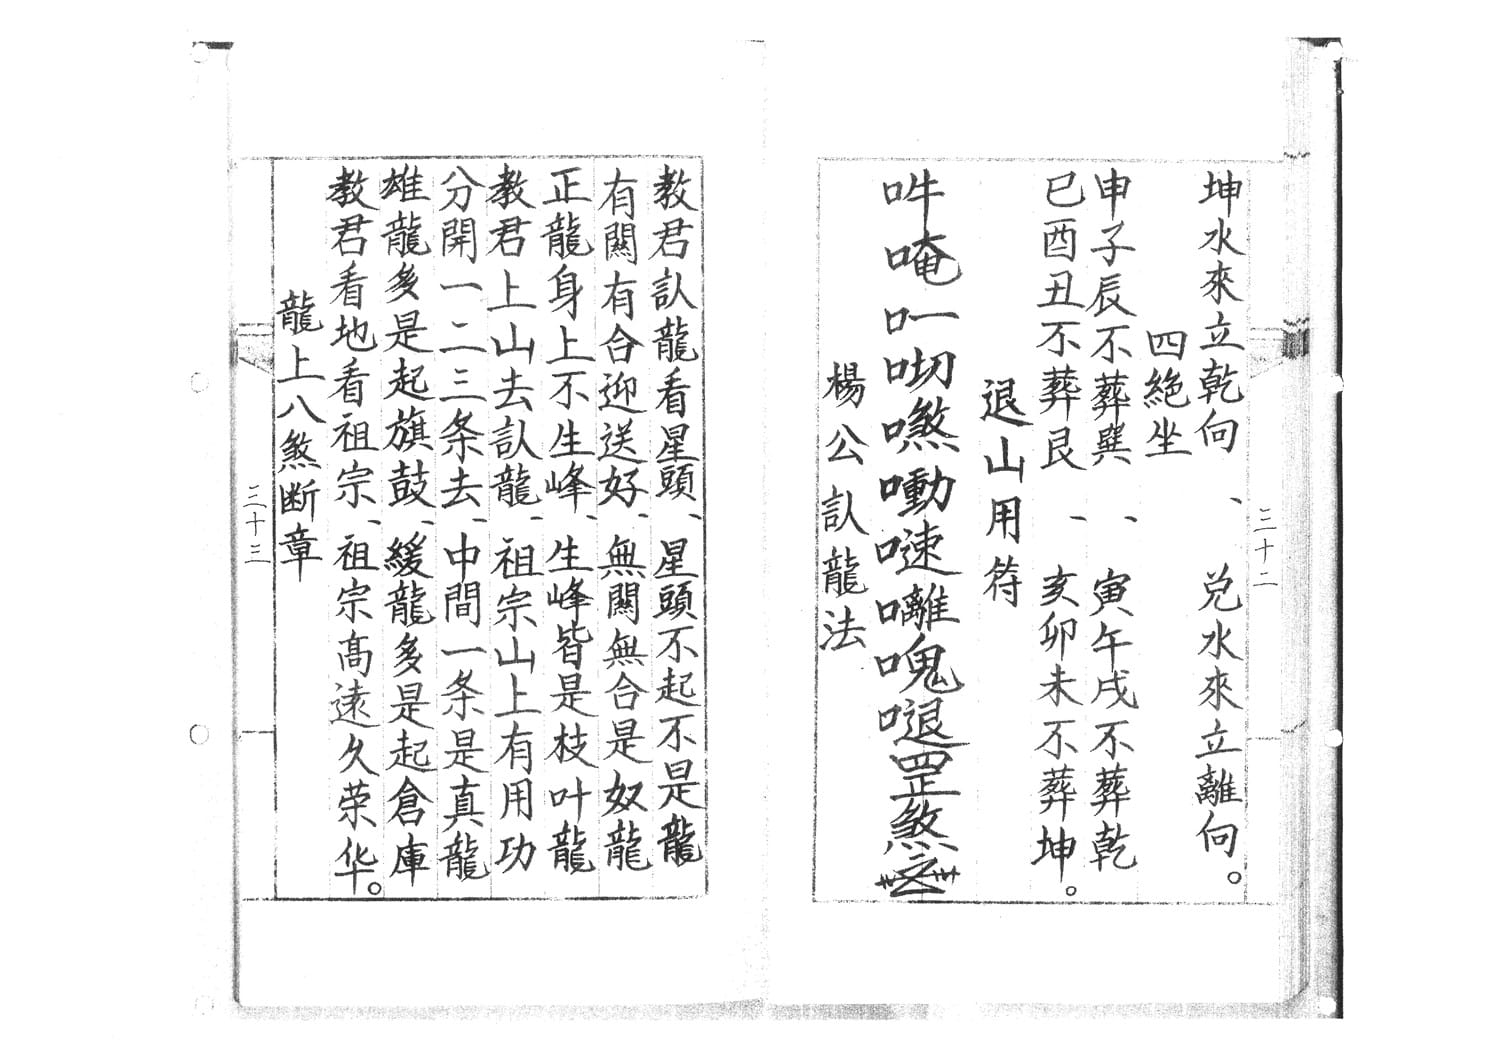 坤水來立乾向、兑水來立離向。
四絶坐
申子辰不葬巽、寅午戌不葬乾
巳酉丑不葬艮、亥卯未不葬坤。
退山用符
吽唵吅𠯗嘕㗢嗹囄嵬𠹌罡煞
楊公訆龍法
三十二
教君訆龍看星頭、星頭不起不是龍
有關有合迎送好、無關無合是奴龍
正龍身上不生峰、生峰皆是枝叶龍
教君上山去訆龍、祖宗山上有用功
分開一二三条去、中間一条是真龍
雄龍多是起旗鼓、緩龍多是起倉庫
教君看地看祖宗、祖宗高遠久荣华。
龍上八煞断章
三十三